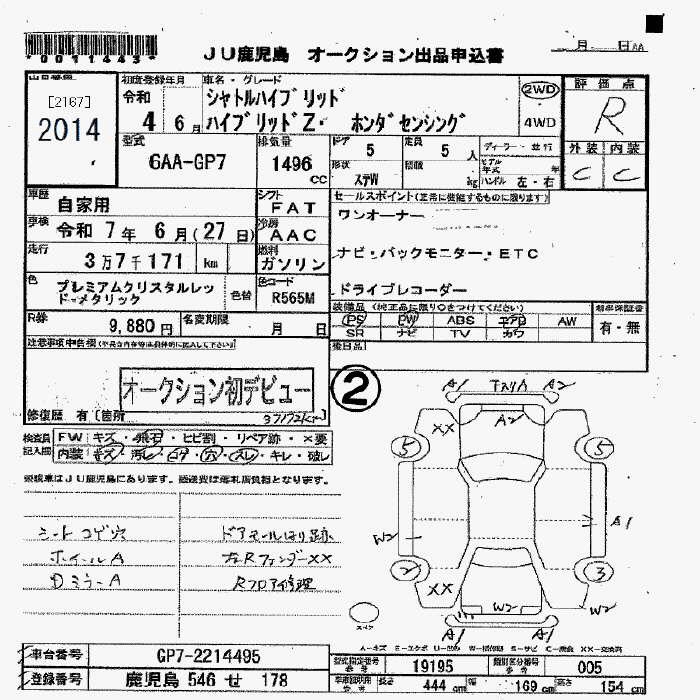 *0011443*
JU鹿児島 オークション出品申込書
月 日 AA
[2167]
2014
初度登録年月
令和
4 6月
車名・グレード
シャトルハイブリッド
ハイブリッドZ ホンダセンシング
2WD
4WD
評価点
R
外装 内装
C C
型式
6AA-GP7
排気量
1496 cc
ドア
5
形状
ステW
定員
5 人
積載
kg
ディーラー・並行
モデル年式 年
ハンドル 左・右
車歴
自家用
シフト
FAT
車検
令和 7年 6月(27日)
冷房
AAC
走行
3万7千171 km
燃料
ガソリン
色
プレミアムクリスタルレッ
ド・メタリック
色替
色コード
R565M
セールスポイント(正常に機能するものに限ります)
ワンオーナー
ナビ・バックモニター・ETC
ドライブレコーダー
R券
9,880円
名変期限
月 日
装備品(純正品に限り○をつけてください)
PS PW ABS エアB AW
SR ナビ TV カワ
後日品
新車保証書
有・無
注意事項申告欄
オークション初デビュー
2
修復歴 有 [箇所
37172km]
検査員記入欄
FW キズ・飛石・ヒビ割・リペア跡・×要
内装 キズ・汚レ・コゲ・穴・スレ・キレ・破レ
シートコゲ穴
ホイールA
DミラーA
ドアモールはり跡
左RフェンダーXX
Rフロア修理
A1 TスリA A2
A2
XX
5
5
A1
W2
2
3
XX
W2
W2
A1 A1
スペア
A-キズ E-エクボ U-凹み W-補修跡 S-サビ C-腐食 XX-交換済
車台番号
GP7-2214495
登録番号
鹿児島 546 せ 178
型式指定番号
19195
類別区分番号
005
長さ 444 cm 幅 169 cm 高さ 154 cm